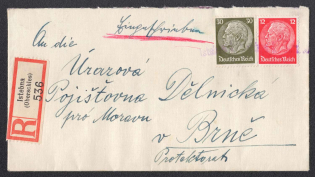 Eingeschrieben
30 30
Deutsches Reich
12 12
Deutsches Reich
An die
Úrazová
Pojišťovna Dělnická
pro Moravu
v Brně
Protektorat
R
Istebna
536